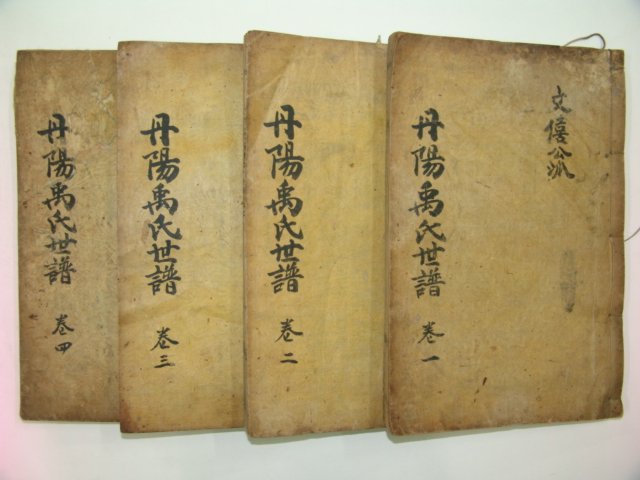 文僖公派
丹陽禹氏世譜 卷一
丹陽禹氏世譜 卷二
丹陽禹氏世譜 卷三
丹陽禹氏世譜 卷四